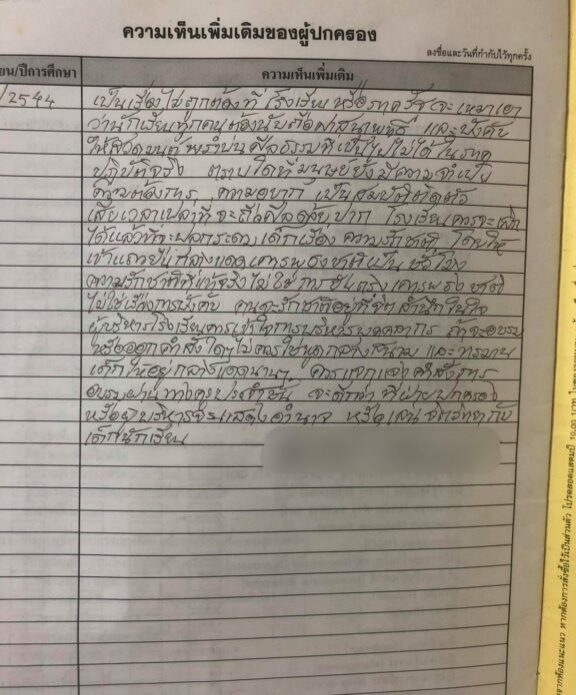 ความเห็นเพิ่มเติมของผู้ปกครอง
ลงชื่อและวันที่กำกับไว้ทุกครั้ง
ยน/ปีการศึกษา
ความเห็นเพิ่มเติม
/2544
เป็นเรื่องไม่ถูกต้องที่ โรงเรียน หรือภาครัฐจะเหมาเอา
ว่านักเรียนทุกคนต้องนับถือศาสนาพุทธ และบังคับ
ให้สวดมนต์ พร่ำบ่นศีลธรรมที่เป็นไปไม่ได้ในภาค
ปฏิบัติจริง ตราบใดที่มนุษย์ยังมีความจำเป็น
ความต้องการ ความอยาก เป็นสมบัติติดตัว
เสียเวลาเปล่าที่จะถือศีลด้วยปาก โรงเรียนควรจะเลิก
ได้แล้วที่จะปลุกระดมเด็กเรื่อง ความรักชาติ โดยให้
เข้าแถวยืนกลางแดดเคารพธงชาติเป็น ชั่วโมง
ความรักชาติที่แท้จริง ไม่ใช่ การยืนตรงเคารพธงชาติ
ไม่ใช่เรื่องการบังคับ คนจะรักชาติอยู่ที่จิตสำนึกในใจ
ผู้บริหารโรงเรียนควรเข้าใจการบริหารบุคคลากร ถ้าจะอบรม
หรือออกคำสั่งใดๆไม่ควรใช้พูดกลางสนาม และทรมาน
เด็กให้อยู่กลางแดดนานๆ ควรแจกแจงคำสั่งการ
อบรมผ่านทางครูประจำชั้น จะดีกว่า ที่ฝ่ายปกครอง
หรือผู้บริหารจะแสดงอำนาจ หรือเล่นจิตวิทยากับ
เด็กนักเรียน